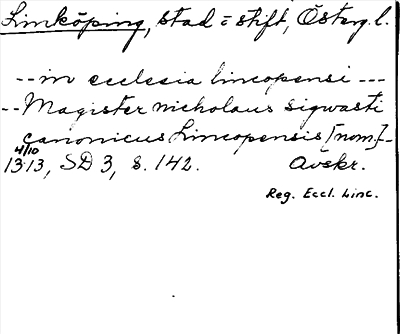 Linköping, stad = stift, Österg. l.
-- in ecclesia lincopensi ---
-- Magister nicholaus sigwasti
canonicus Lincopensis [nom.]--
4/10
1313, SD 3, s. 142. Avskr.
Reg. Eccl. Linc.